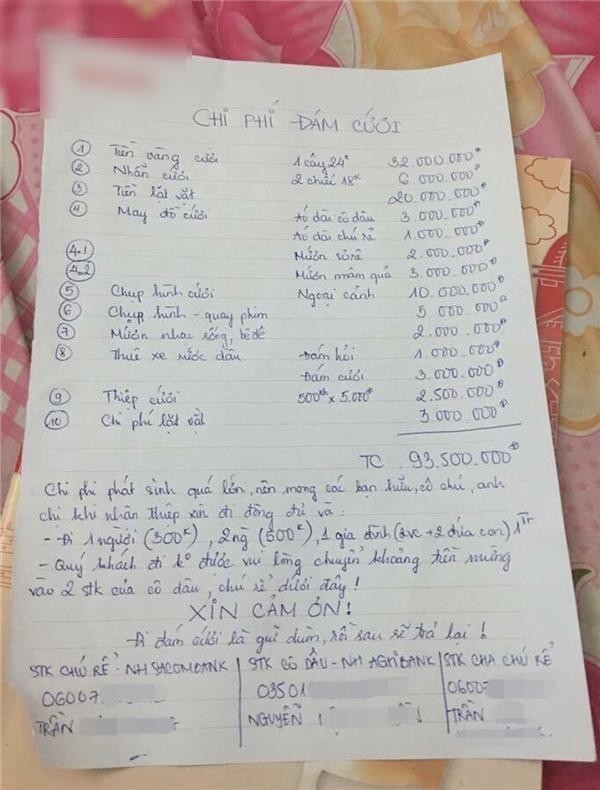 CHI PHÍ ĐÁM CƯỚI
① Tiền vàng cưới 1 cây 24K 32.000.000đ
② Nhẫn cưới 2 chiếc 18K 6.000.000đ
③ Tiền lót vặt 20.000.000đ
④ May đồ cưới Áo dài cô dâu 3.000.000đ
Áo dài chú rể 1.000.000đ
4.1 Mướn sơrê 2.000.000đ
4.2 Mướn mâm quả 3.000.000đ
⑤ Chụp hình cưới Ngoại cảnh 10.000.000đ
⑥ Chụp hình - quay phim 5.000.000đ
⑦ Mướn nhạc sống, bê đế 2.000.000đ
⑧ Thuê xe rước dâu Đám hỏi 1.000.000đ
Đám cưới 3.000.000đ
⑨ Thiệp cưới 500th x 5.000đ 2.500.000đ
⑩ Chi phí lặt vặt 3.000.000đ
TC 93.500.000đ
Chi phí phát sinh quá lớn, nên mong các bạn hữu, cô chú, anh
chị khi nhận thiệp xin đi đông đủ và:
- Đi 1 người (300K), 2ng (500K), 1 gia đình (2vc + 2 đứa con) 1Tr
- Quý khách đi ko được vui lòng chuyển khoảng tiền mừng
vào 2 stk của cô dâu, chú rể dưới đây!
XIN CẢM ƠN!
Đi đám cưới là gửi dùm, rồi sau sẽ trả lại!
STK CHÚ RỂ: NH SACOMBANK
06007
TRẦN
STK CÔ DÂU - NH AGRIBANK
03501
NGUYỄN
STK CHA CHÚ RỂ
06007
TRẦN